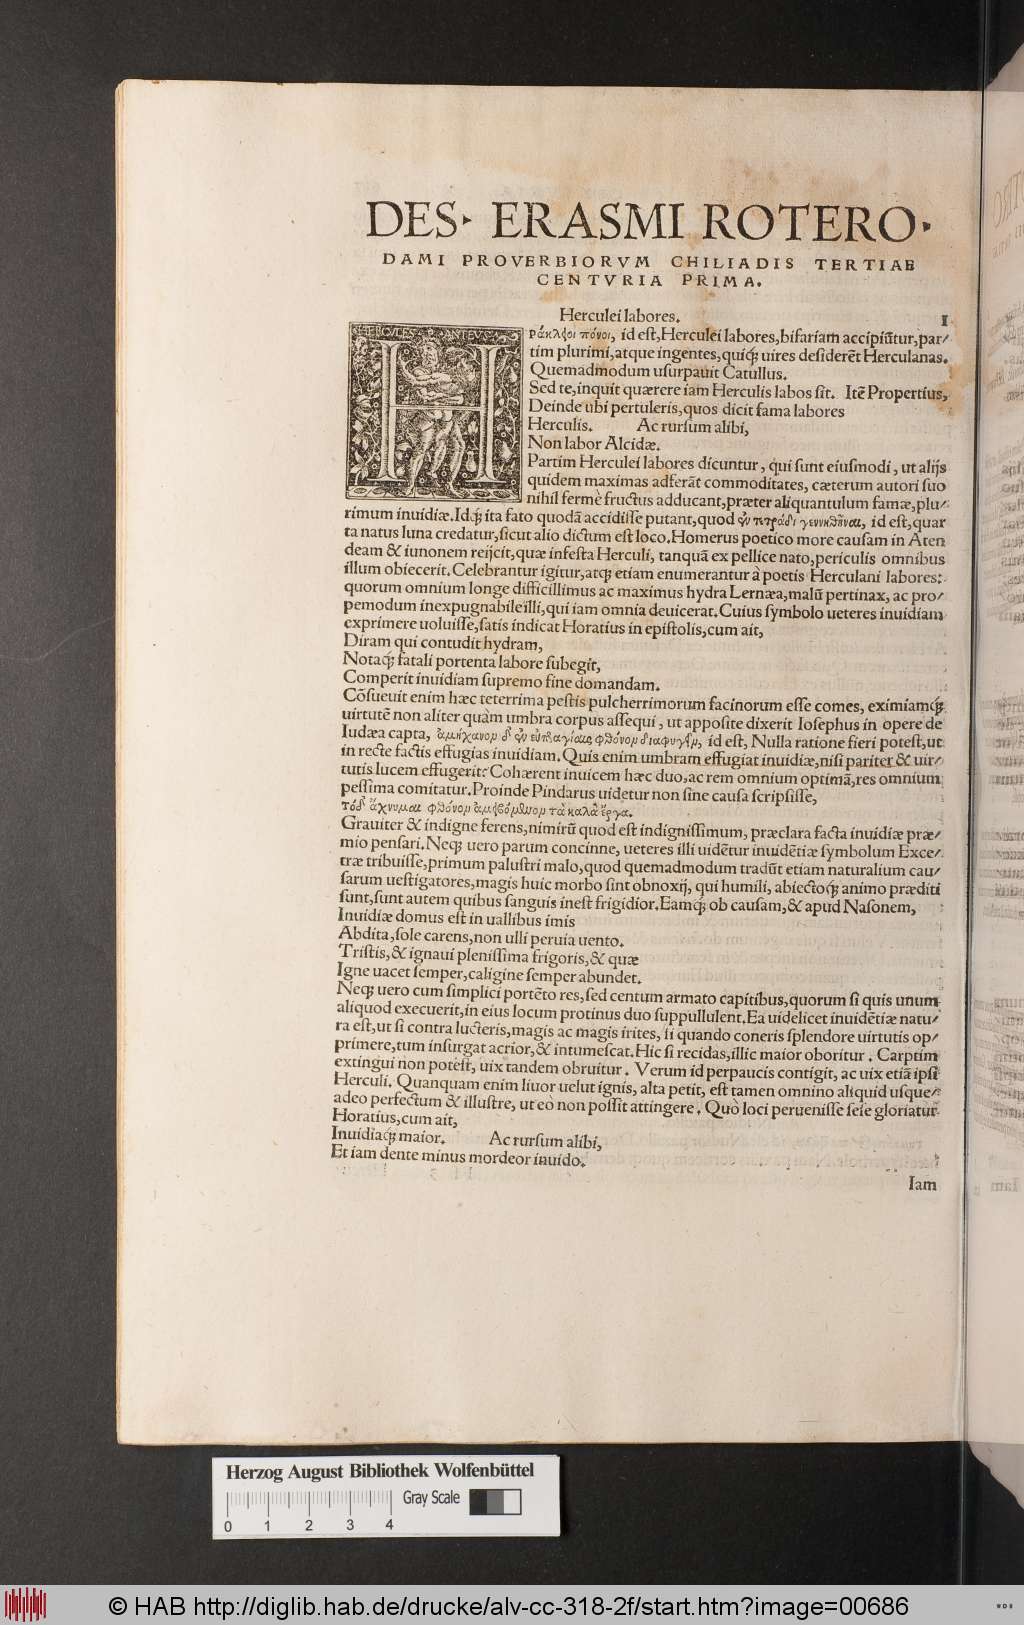 DES· ERASMI ROTERO·
DAMI PROVERBIORVM CHILIADIS TERTIAE
CENTVRIA PRIMA.
Herculei labores. I
HERCVLES ANTEVS
Hράκλειοι πόνοι, id est, Herculei labores, bifariam accipiūtur, par-
tim plurimi, atque ingentes, quiq; uires desiderēt Herculanas.
Quemadmodum usurpauit Catullus.
Sed te, inquit quærere iam Herculis labos sit. Itē Propertius,
Deinde ubi pertuleris, quos dicit fama labores
Herculis. Ac rursum alibi,
Non labor Alcidæ.
Partim Herculei labores dicuntur, qui sunt eiusmodi, ut alijs
quidem maximas adferāt commoditates, cæterum autori suo
nihil fermè fructus adducant, præter aliquantulum famæ, plu-
rimum inuidiæ. Idq; ita fato quodā accidisse putant, quod ἐν τετράδι γεννηθῆναι, id est, quar
ta natus luna credatur, sicut alio dictum est loco. Homerus poetico more causam in Aten
deam & iunonem reijcit, quæ infesta Herculi, tanquā ex pellice nato, periculis omnibus
illum obiecerit. Celebrantur igitur, atq; etiam enumerantur à poetis Herculani labores:
quorum omnium longe difficillimus ac maximus hydra Lernæa, malū pertinax, ac pro-
pemodum inexpugnabile illi, qui iam omnia deuicerat. Cuius symbolo ueteres inuidiam
exprimere uoluisse, satis indicat Horatius in epistolis, cum ait,
Diram qui contudit hydram,
Notaq; fatali portenta labore subegit,
Comperit inuidiam supremo fine domandam.
Cōsueuit enim hæc teterrima pestis pulcherrimorum facinorum esse comes, eximiamq;
uirtutē non aliter quàm umbra corpus assequi, ut apposite dixerit Iosephus in opere de
Iudæa capta, ἀμήχανον δ' ἐν εὐπραγίαις φθόνον διαφυγεῖν, id est, Nulla ratione fieri potest, ut
in recte factis effugias inuidiam. Quis enim umbram effugiat inuidiæ, nisi pariter & uir-
tutis lucem effugerit: Cohærent inuicem hæc duo, ac rem omnium optimā, res omnium
pessima comitatur. Proinde Pindarus uidetur non sine causa scripsisse,
τόδ' ἄχνυμαι φθόνον ἀμειβόμενον τὰ καλὰ ἔργα.
Grauiter & indigne ferens, nimirū quod est indignissimum, præclara facta inuidiæ præ-
mio pensari. Neq; uero parum concinne, ueteres illi uidētur inuidētiæ symbolum Exce-
træ tribuisse, primum palustri malo, quod quemadmodum tradūt etiam naturalium cau-
sarum uestigatores, magis huic morbo sint obnoxij, qui humili, abiectoq; animo præditi
sunt, sunt autem quibus sanguis inest frigidior. Eamq; ob causam, & apud Nasonem,
Inuidiæ domus est in uallibus imis
Abdita, sole carens, non ulli peruia uento.
Tristis, & ignaui plenissima frigoris, & quæ
Igne uacet semper, caligine semper abundet.
Neq; uero cum simplici portēto res, sed centum armato capitibus, quorum si quis unum
aliquod execuerit, in eius locum protinus duo suppullulent. Ea uidelicet inuidētiæ natu-
ra est, ut si contra lucteris, magis ac magis irites, si quando coneris splendore uirtutis op-
primere, tum insurgat acrior, & intumescat. Hic si recidas, illic maior oboritur. Carptim
extingui non potest, uix tandem obruitur. Verum id perpaucis contigit, ac uix etiā ipsi
Herculi. Quanquam enim liuor uelut ignis, alta petit, est tamen omnino aliquid usque-
adeo perfectum & illustre, ut eò non possit attingere. Quò loci peruenisse sese gloriatur
Horatius, cum ait,
Inuidiaq; maior. Ac rursum alibi,
Et iam dente minus mordeor inuido.
Iam
Herzog August Bibliothek Wolfenbüttel
Gray Scale
0 1 2 3 4
© HAB http://diglib.hab.de/drucke/alv-cc-318-2f/start.htm?image=00686